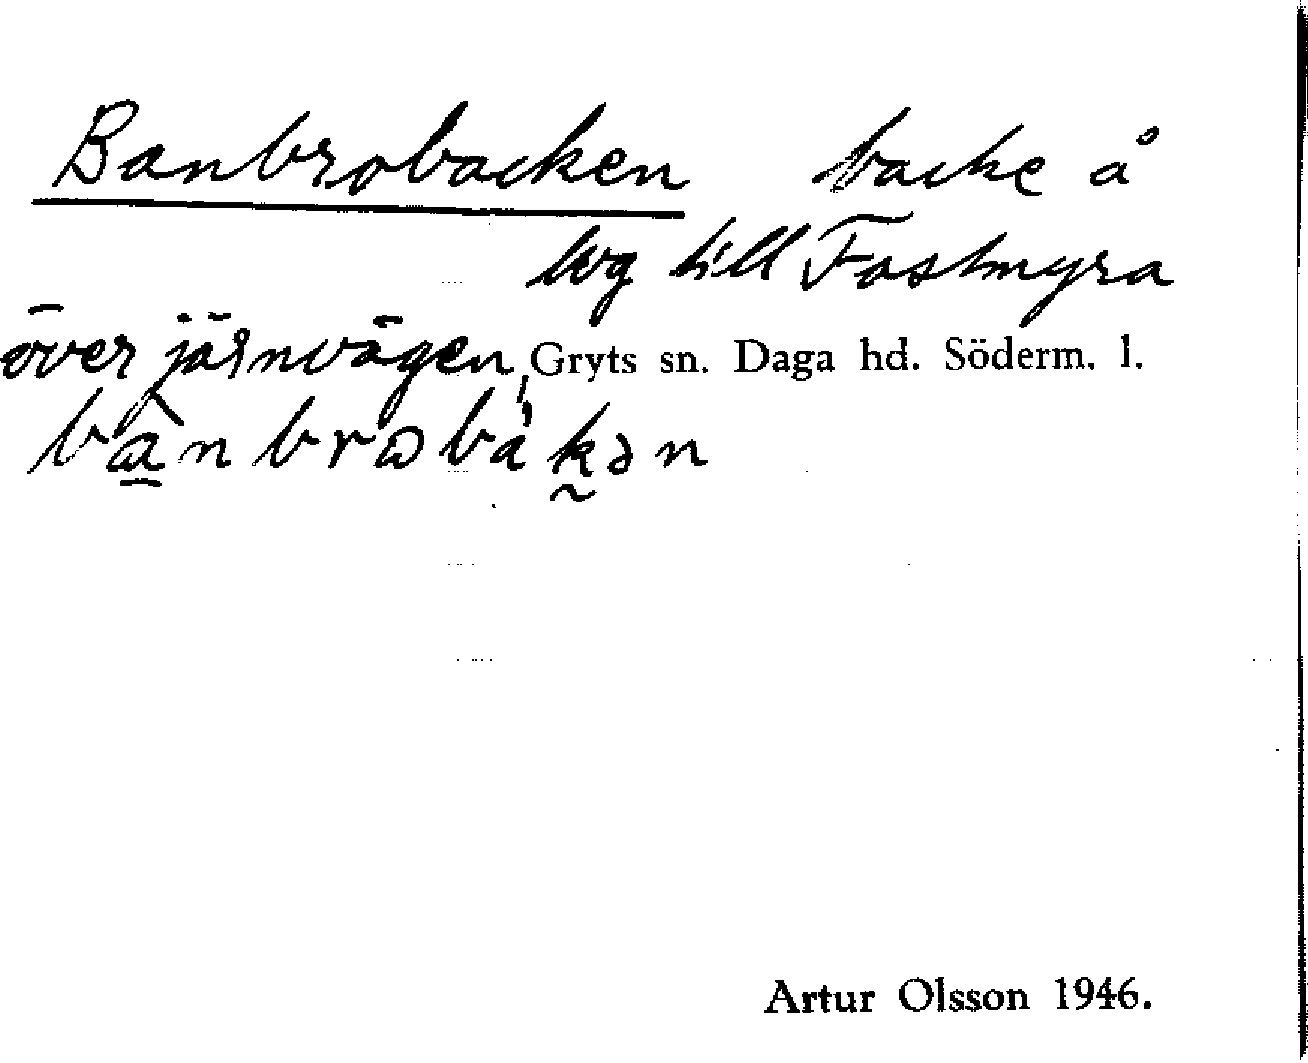 Banbrobacken backe å
väg till Fastmyra
över järnvägen, Gryts sn. Daga hd. Söderm. l.
Artur Olsson 1946.